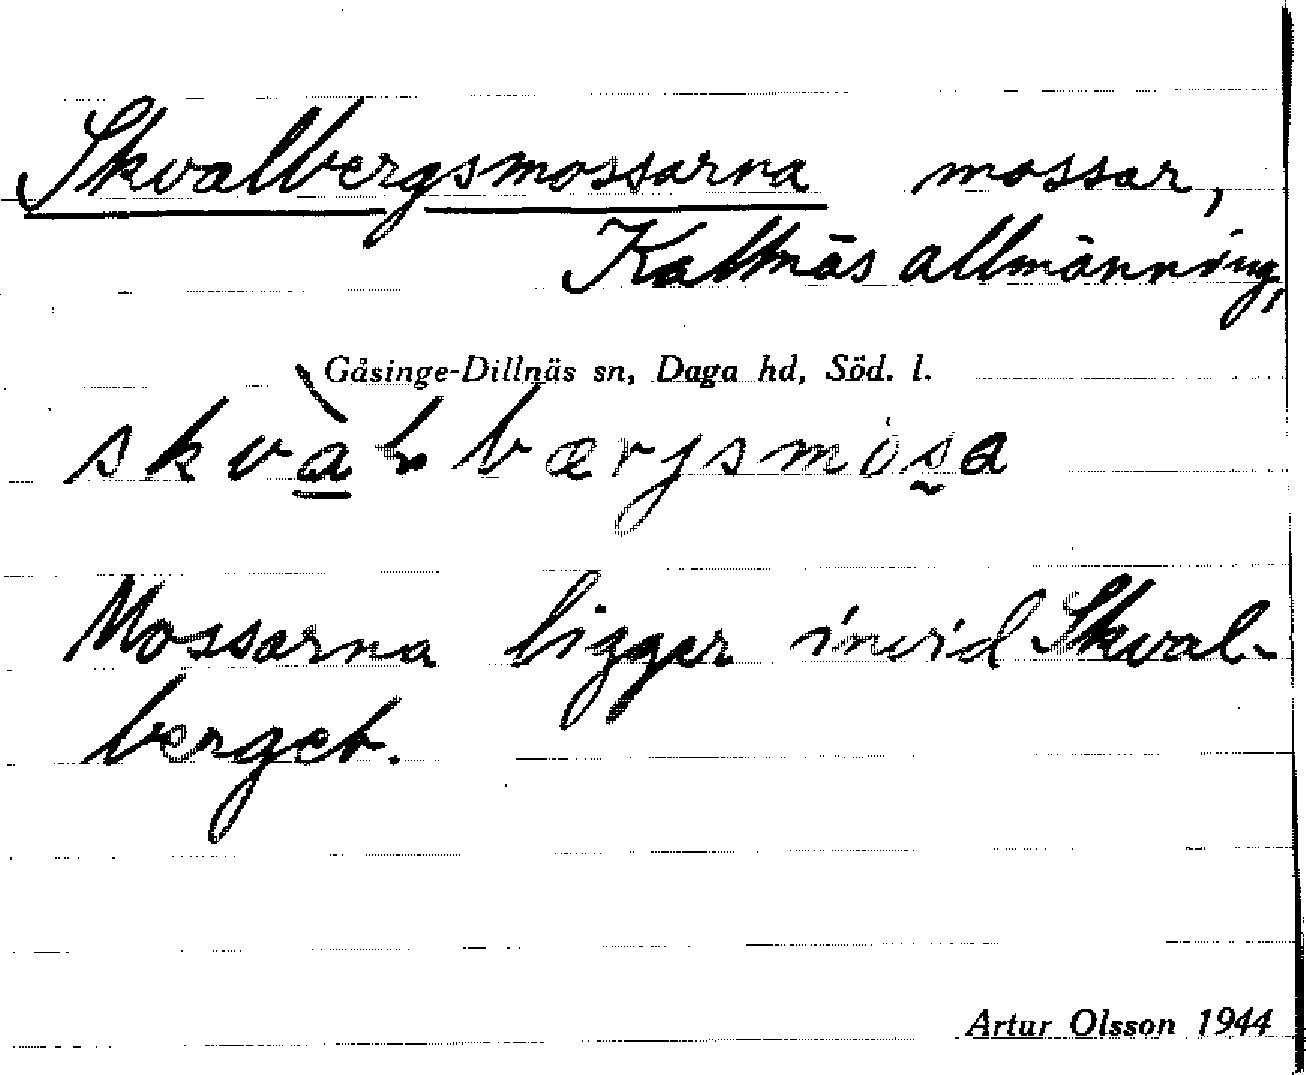 Skvalbergsmossarna mossar,
Kattnäs allmänning,
Gåsinge-Dillnäs sn, Daga hd, Söd. l.
Mossarna ligger invid Skval-
berget.
Artur Olsson 1944